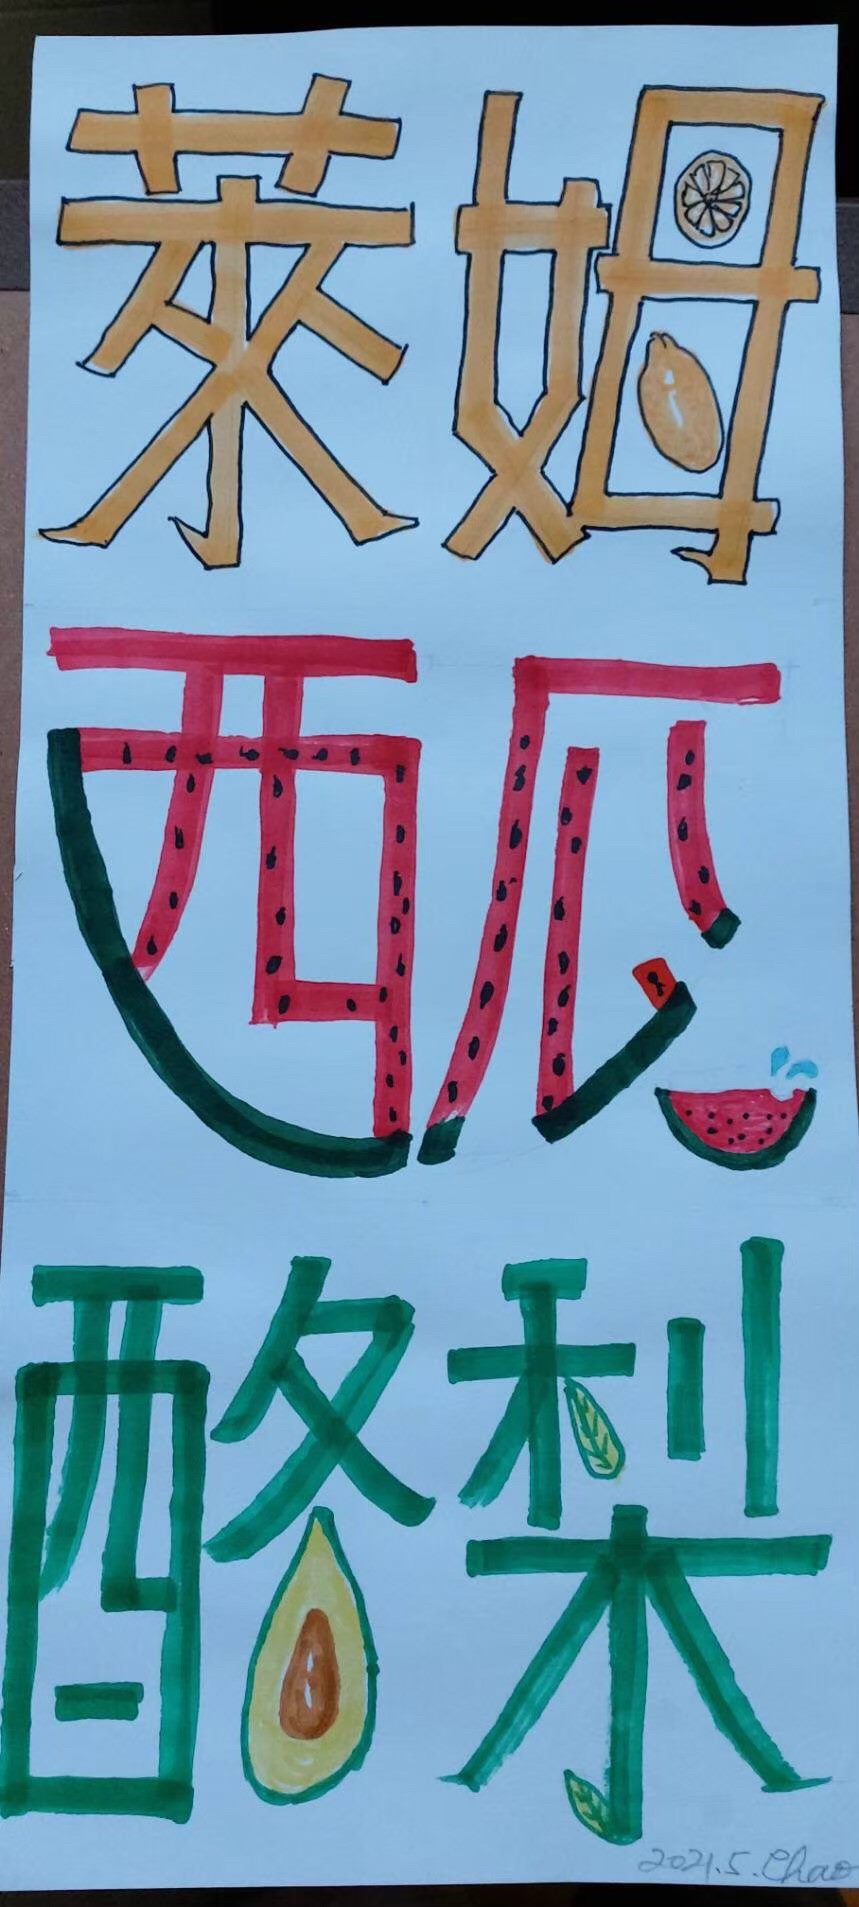 萊姆
西瓜
酪梨
2021.5.Chao